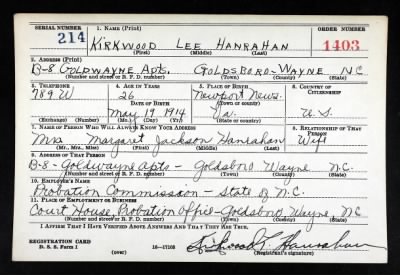 SERIAL NUMBER 1. NAME (Print) ORDER NUMBER
214 KIRKWOOD LEE HANRAHAN 1403
(First) (Middle) (Last)
2. ADDRESS (Print)
B-8 GOLDWAYNE APTS. GOLDSBORO-WAYNE NC
(Number and street or R. F. D. number) (Town) (County) (State)
3. TELEPHONE 4. AGE IN YEARS 5. PLACE OF BIRTH 6. COUNTRY OF CITIZENSHIP
789 W 26 Newport News
DATE OF BIRTH (Town or county)
May 19 1914 Va. U.S.
(Exchange) (Number) (Mo.) (Day) (Yr.) (State or country)
7. NAME OF PERSON WHO WILL ALWAYS KNOW YOUR ADDRESS 8. RELATIONSHIP OF THAT PERSON
Mrs Margaret Jackson Hanrahan Wife
(Mr., Mrs., Miss) (First) (Middle) (Last)
9. ADDRESS OF THAT PERSON
B-8-Goldwayne Apts - Goldsboro Wayne N.C.
(Number and street or R. F. D. number) (Town) (County) (State)
10. EMPLOYER'S NAME
Probation Commission - State of N.C.
11. PLACE OF EMPLOYMENT OR BUSINESS
Court House, Probation Office-Goldsboro Wayne NC
(Number and street or R. F. D. number) (Town) (County) (State)
I AFFIRM THAT I HAVE VERIFIED ABOVE ANSWERS AND THAT THEY ARE TRUE.
REGISTRATION CARD
D. S. S. Form 1 (over) 16—17105 Kirkwood L. Hanrahan
(Registrant's signature)